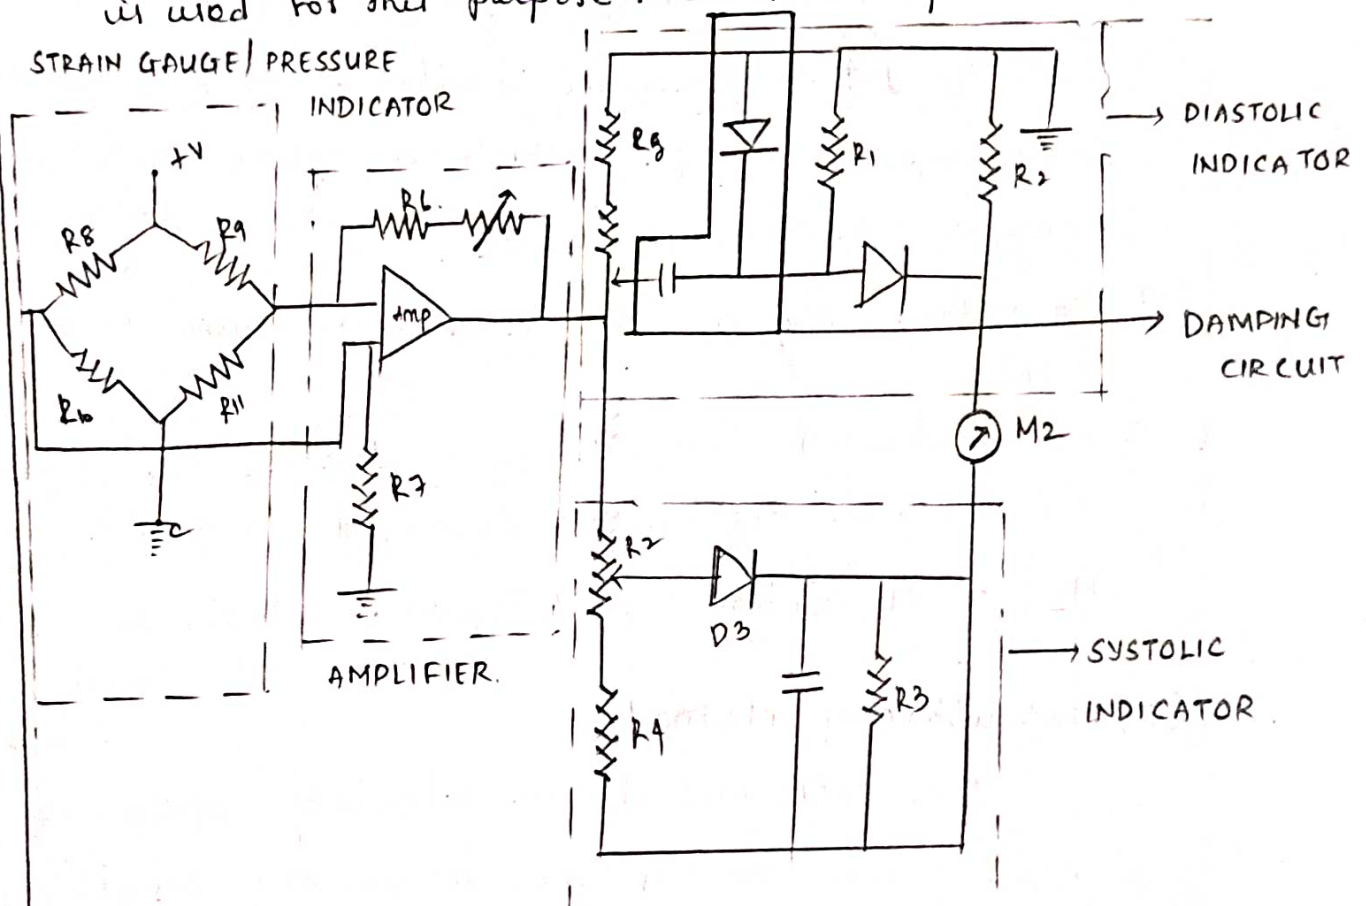 is used for this purpose.
STRAIN GAUGE/PRESSURE
INDICATOR
+V
R8
R9
R10
R11
R6.
Amp
R7
AMPLIFIER.
R1
R2
DIASTOLIC
INDICATOR
DAMPING
CIRCUIT
M2
R2
D3
R4
R3
SYSTOLIC
INDICATOR.